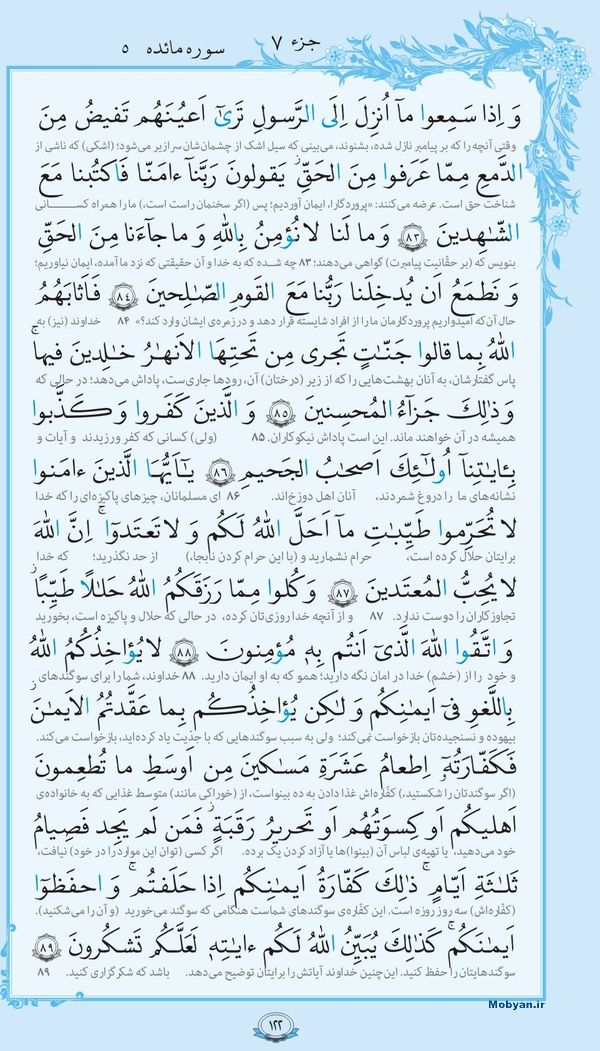 جزء ۷
سوره مائده ۵
وَ اِذا سَمِعوا مآ اُنزِلَ اِلَی الرَّسولِ تَرىٰٓ اَعیُنَهُم تَفیضُ مِنَ
وقتی آنچه را که بر پیامبر نازل شده، بشنوند، می‌بینی که سیل اشک از چشمان‌شان سرازیر می‌شود؛ (اشکی) که ناشی از
الدَّمعِ مِمّا عَرَفوا مِنَ الحَقِّ ۖ یَقولونَ رَبَّنآ ءامَنّا فَاکتُبنا مَعَ
شناخت حق است. عرضه می‌کنند: «پروردگارا، ایمان آوردیم؛ پس (اگر سخنمان راست است،) ما را همراه کسانی
الشّٰهِدینَ ﴿۸۳﴾ وَ ما لَنا لا نُؤمِنُ بِاللّٰهِ وَ ما جآءَنا مِنَ الحَقِّ
بنویس که (بر حقّانیت پیامبرت) گواهی می‌دهند؛ ۸۳ چه شده که به خدا و آن حقیقتی که نزد ما آمده، ایمان نیاوریم؛
وَ نَطمَعُ اَن یُدخِلَنا رَبُّنا مَعَ القَومِ الصّٰلِحینَ ﴿۸۴﴾ فَاَثابَهُمُ
حال آن‌که امیدواریم پروردگارمان ما را از افراد شایسته قرار دهد و در زمره‌ی ایشان وارد کند؟» ۸۴ خداوند (نیز) به
اللّٰهُ بِما قالوا جَنّٰتٍ تَجری مِن تَحتِهَا الاَنهٰرُ خٰلِدینَ فیها ۚ
پاس گفتارشان، به آنان بهشت‌هایی را که از زیر (درختان) آن، رودها جاری‌ست، پاداش می‌دهد؛ در حالی که
وَ ذٰلِکَ جَزآءُ المُحسِنینَ ﴿۸۵﴾ وَ الَّذینَ کَفَروا وَ کَذَّبوا
همیشه در آن خواهند ماند. این است پاداش نیکوکاران. ۸۵ (ولی) کسانی که کفر ورزیدند و آیات و
بِـٔایٰتِنآ اُولٰٓئِکَ اَصحٰبُ الجَحیمِ ﴿۸۶﴾ یٰٓاَیُّهَا الَّذینَ ءامَنوا
نشانه‌های ما را دروغ شمردند، آنان اهل دوزخ‌اند. ۸۶ ای مسلمانان، چیزهای پاکیزه‌ای را که خدا
لا تُحَرِّموا طَیِّبٰتِ مآ اَحَلَّ اللّٰهُ لَکُم وَ لا تَعتَدوٓا ۚ اِنَّ اللّٰهَ
برایتان حلال کرده است، حرام نشمارید و (با این حرام کردن نابجا،) از حد نگذرید؛ که خدا
لا یُحِبُّ المُعتَدینَ ﴿۸۷﴾ وَ کُلوا مِمّا رَزَقَکُمُ اللّٰهُ حَلٰلًا طَیِّبًا ۚ
تجاوزکاران را دوست ندارد. ۸۷ و از آنچه خدا روزی‌تان کرده، در حالی که حلال و پاکیزه است، بخورید
وَ اتَّقُوا اللّٰهَ الَّذیٓ اَنتُم بِهٖ مُؤمِنونَ ﴿۸۸﴾ لا یُؤاخِذُکُمُ اللّٰهُ
و خود را از (خشم) خدا در امان نگه دارید؛ همو که به او ایمان دارید. ۸۸ خداوند، شما را برای سوگندهای
بِاللَّغوِ فیٓ اَیمٰنِکُم وَ لٰکِن یُؤاخِذُکُم بِما عَقَّدتُمُ الاَیمٰنَ ۖ
بیهوده و نسنجیده‌تان بازخواست نمی‌کند؛ ولی به سبب سوگندهایی که با جدّیت یاد کرده‌اید، بازخواست می‌کند.
فَکَفّٰرَتُهٗٓ اِطعامُ عَشَرَةِ مَسٰکینَ مِن اَوسَطِ ما تُطعِمونَ
(اگر سوگندتان را شکستید،) کفّاره‌اش غذا دادن به ده بینواست، از (خوراکی مانند) متوسط غذایی که به خانواده‌ی
اَهلیکُم اَو کِسوَتُهُم اَو تَحریرُ رَقَبَةٍ ۖ فَمَن لَم یَجِد فَصیامُ
خود می‌دهید، یا تهیه‌ی لباس آن (بینوا)ها یا آزاد کردن یک برده. اگر کسی (توان این موارد را در خود) نیافت،
ثَلٰثَةِ اَیّامٍ ۚ ذٰلِکَ کَفّٰرَةُ اَیمٰنِکُم اِذا حَلَفتُم ۚ وَ احفَظوٓا
(کفّاره‌اش) سه روز روزه است. این کفّاره‌ی سوگندهای شماست هنگامی که سوگند می‌خورید (و آن را می‌شکنید).
اَیمٰنَکُم ۚ کَذٰلِکَ یُبَیِّنُ اللّٰهُ لَکُم ءایٰتِهٖ لَعَلَّکُم تَشکُرونَ ﴿۸۹﴾
سوگندهایتان را حفظ کنید. این‌چنین خداوند آیاتش را برایتان توضیح می‌دهد. باشد که شکرگزاری کنید. ۸۹
Mobyan.ir
۱۲۲